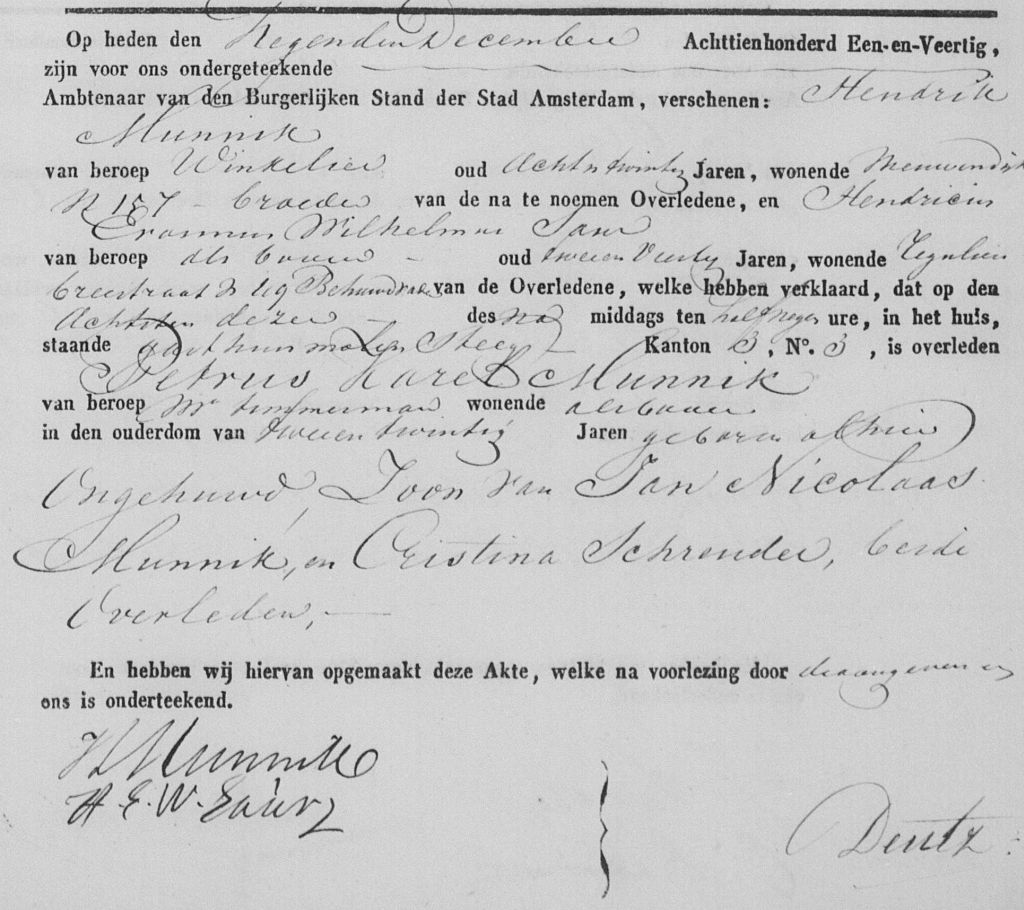 Op heden den Negenden December Achttienhonderd Een-en-Veertig,
zijn voor ons ondergeteekende
Ambtenaar van den Burgerlijken Stand der Stad Amsterdam, verschenen: Hendrik
Munnik
van beroep Winkelier oud Acht n twintig Jaren, wonende Nieuwendijk
N 157 - broeder van de na te noemen Overledene, en Hendricus
Erasmus Wilhelmus Saur
van beroep als boven - oud tweeen Veertig Jaren, wonende
breestraat N 69 Behuwdvader van de Overledene, welke hebben verklaard, dat op den
Achtsten dezer - des na middags ten half negen ure, in het huis,
staande steeg - Kanton 3, No. 3, is overleden
Petrus Karel Munnik
van beroep Mr timmerman wonende als boven
in den ouderdom van tweeen twintig Jaren geboren alhier
Ongehuwd, Zoon van Jan Nicolaas
Munnik, en Cristina Schreuder, beide
Overleden, -
En hebben wij hiervan opgemaakt deze Akte, welke na voorlezing door de aangevers en
ons is onderteekend.
H Munnik
H. E. W. Saur
Deutz